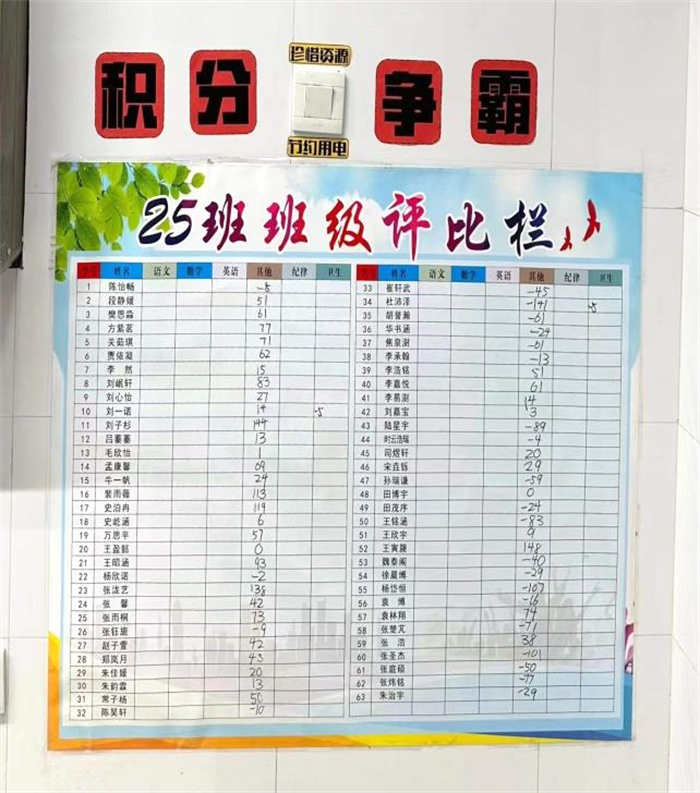 珍惜资源
积分争霸
节约用电
25班班级评比栏
学号 姓名 语文 数学 英语 其他 纪律 卫生
1 陈怡畅 -8
2 段静媛 51
3 樊思淼 61
4 方紫茗 77
5 关茹琪 71
6 贾依凝 62
7 李然 15
8 刘岷轩 83
9 刘心怡 27
10 刘一诺 14 -5
11 刘子杉 144
12 吕蓁蓁 13
13 毛欣怡 1
14 孟康馨 69
15 牛一帆 24
16 裴雨薇 113
17 史泊冉 119
18 史屹涵 6
19 万思平 57
20 王盈懿 0
21 王昭涵 93
22 杨欣诺 -2
23 张泷艺 138
24 张馨 42
25 张雨桐 73
26 张钰旎 -9
27 赵子萱 42
28 郑岚月 45
29 朱佳媛 20
30 朱韵霖 13
31 常子杨 50
32 陈昊轩 -10
学号 姓名 语文 数学 英语 其他 纪律 卫生
33 崔轩武 -45
34 杜沛泽 -141 -5
35 胡誉瀚 -61
36 华书涵 -24
37 焦泉澍 -61
38 李承翰 -13
39 李浩铭 51
40 李嘉悦 61
41 李易澍 14
42 刘嘉宝 3
43 陆星宇 -89
44 时云浩瑞 -4
45 司煜轩 20
46 宋垚铄 29
47 孙瑞谦 -59
48 田博宇 0
49 田茂序 -24
50 王铭涵 -83
51 王欣宇 9
52 王寅晟 148
53 魏秦阁 -40
54 徐晨博 -29
55 杨岱恒 -107
56 袁博 -16
57 袁林翔 74
58 张楚芃 -71
59 张浩 38
60 张圣杰 -101
61 张庭硕 -50
62 张炜铭 -77
63 朱治宇 -29